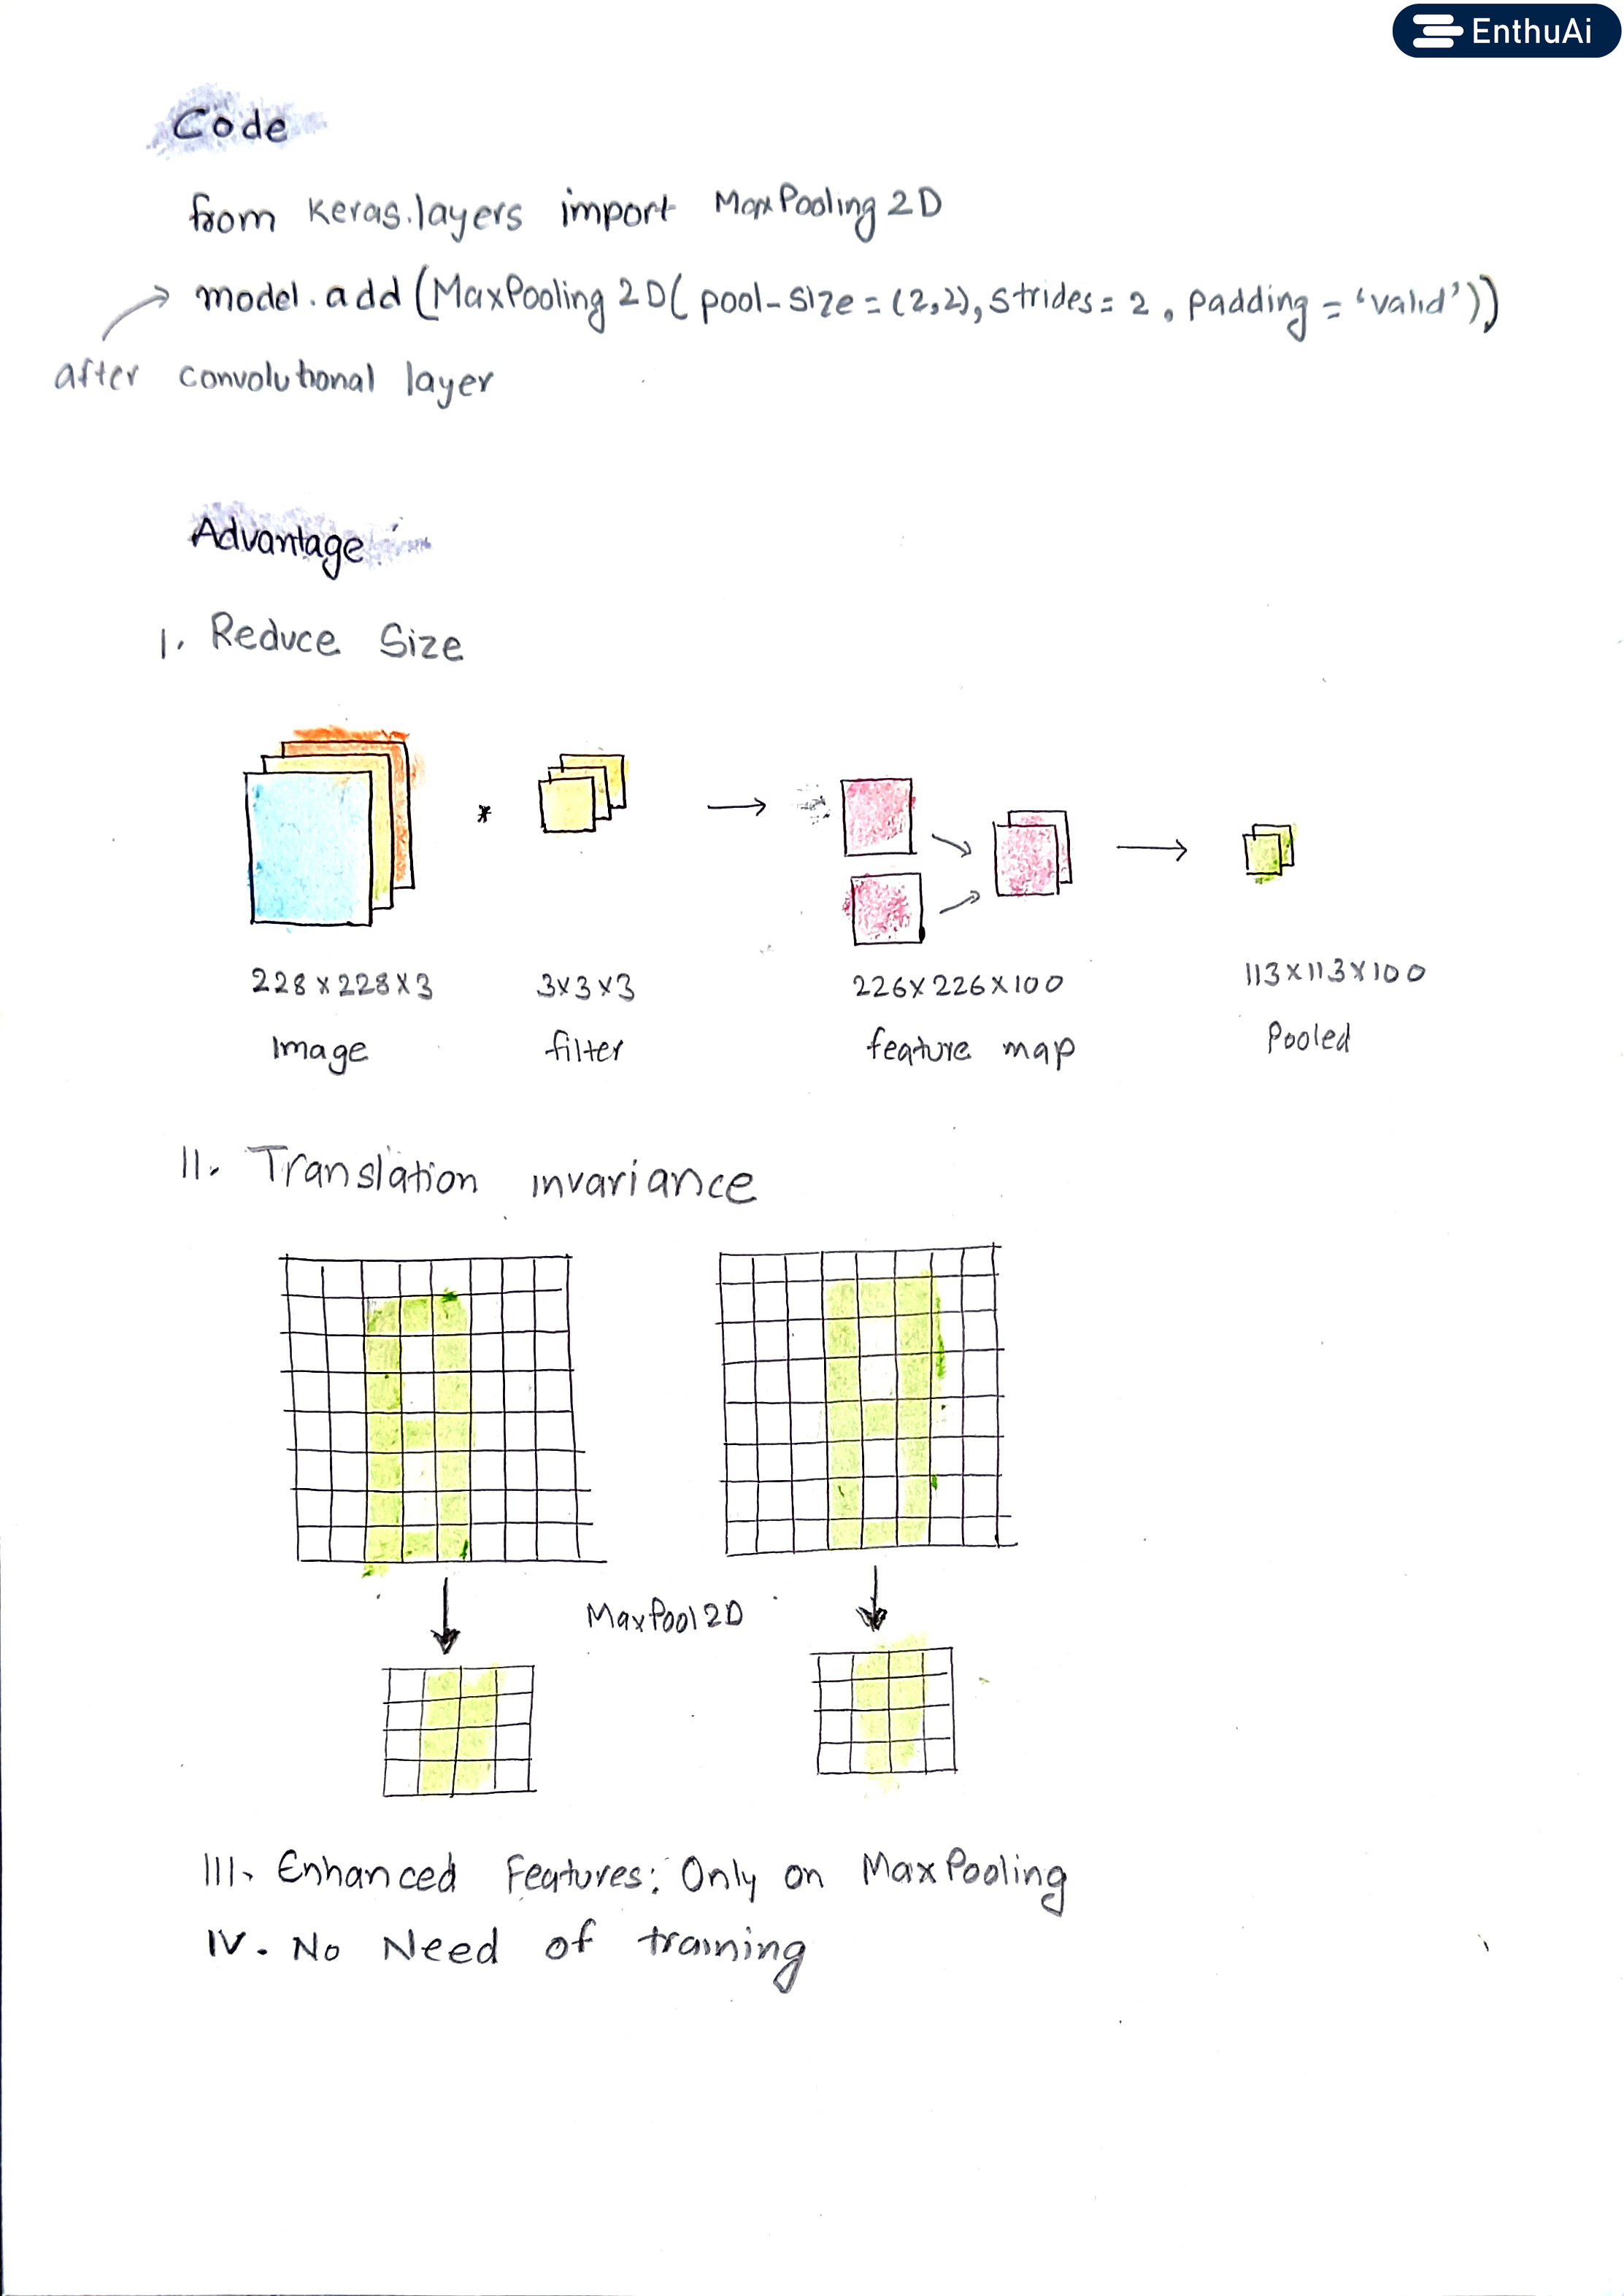 EnthuAi
Code
from keras.layers import MaxPooling2D
model.add(MaxPooling2D(pool-size=(2,2), strides=2, padding='valid'))
after convolutional layer
Advantage
I. Reduce Size
*
228x228x3
3x3x3
226x226x100
113x113x100
Image
filter
feature map
Pooled
II. Translation invariance
MaxPool2D
III. Enhanced Features: Only on MaxPooling
IV. No Need of training